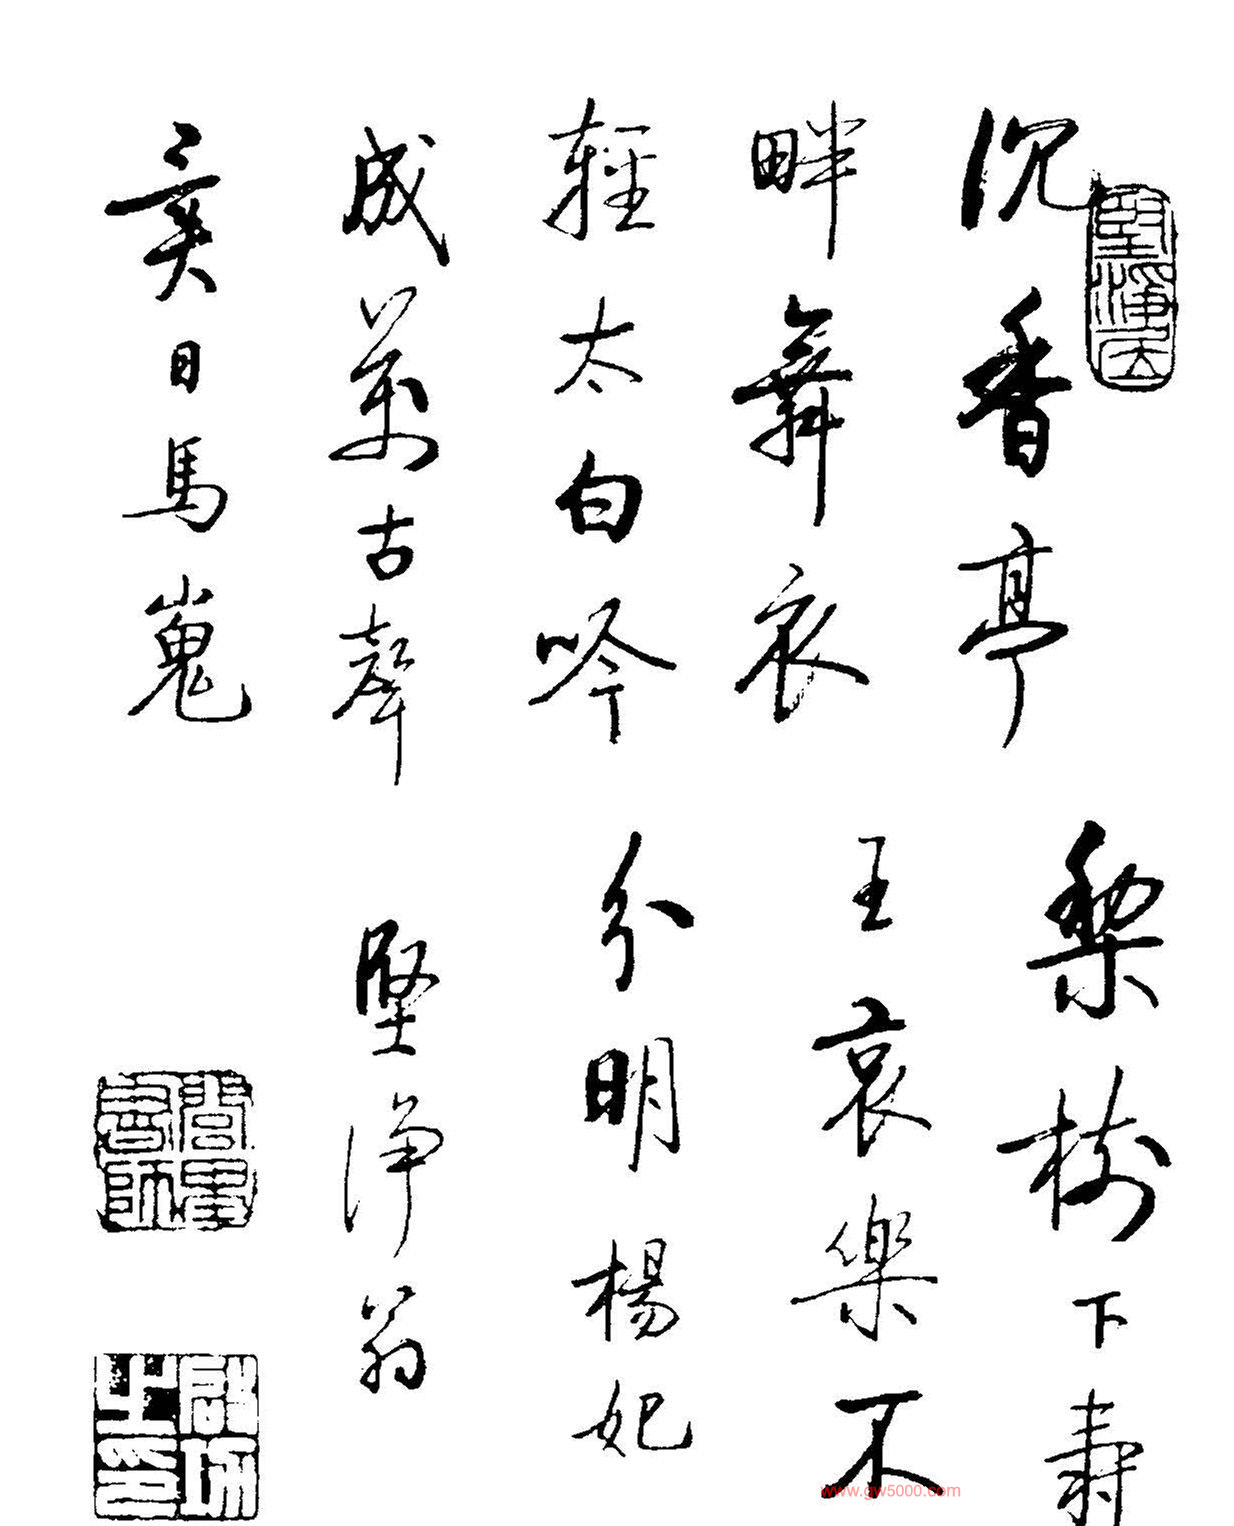 堅淨居
沉香亭
畔舞衣
輕太白吟
成萬古聲
異日馬嵬
梨樹下壽
王哀樂不
分明楊妃
堅淨翁
www.gw5000.com